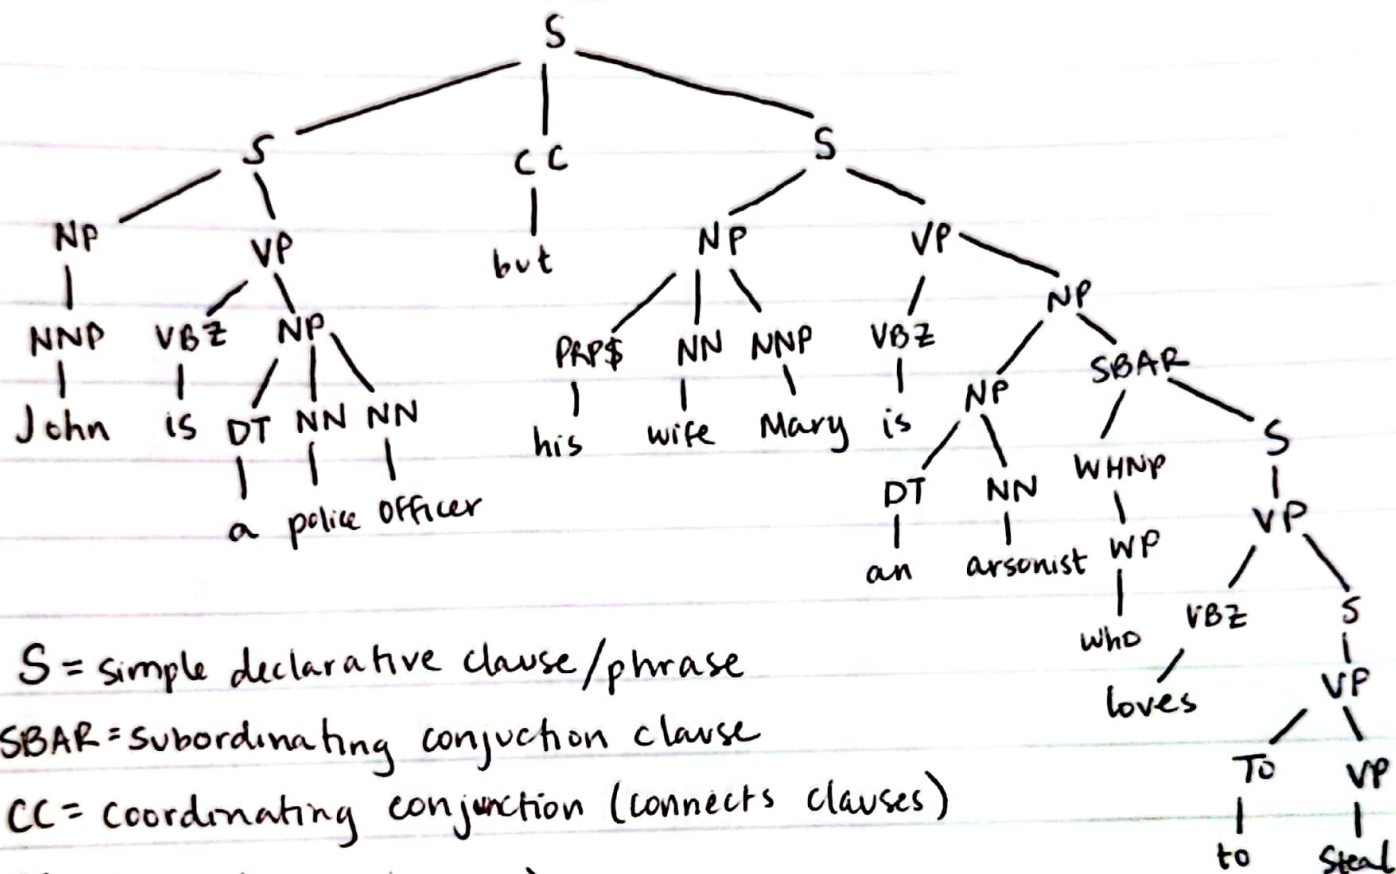 S
S CC S
NP VP but NP VP
NNP VBZ NP PRP$ NN NNP VBZ NP
John is DT NN NN his wife Mary is NP SBAR
a police officer DT NN WHNP S
an arsonist WP VP
who VBZ S
loves VP
To VP
to steal
S = simple declarative clause/phrase
SBAR = subordinating conjuction clause
CC = coordinating conjunction (connects clauses)